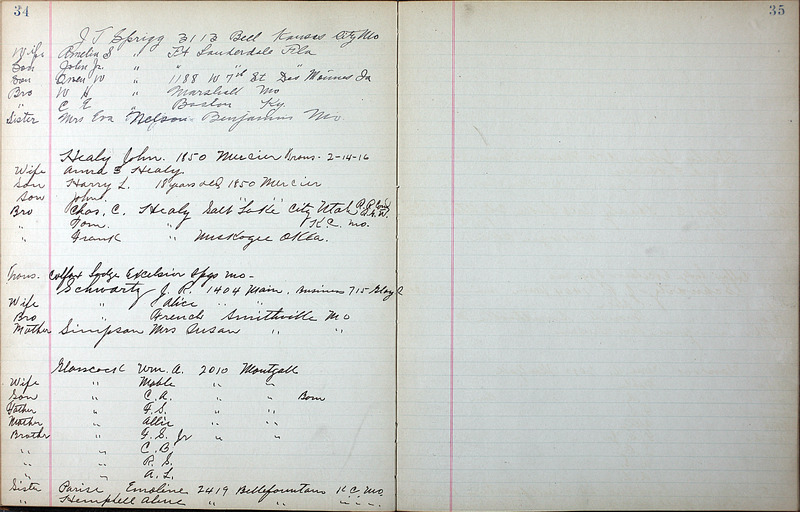 34
J T Sprigg 3113 Bell Kansas City Mo
Wife Amelia S " Ft Lauderdale Fla
Son John Jr. " "
Son Owen W " 1188 W 7th St Des Moines Ia
Bro W H " Marshall Mo
" C E " Boston Ky.
Sister Mrs Eva Nelson - Benjamins Mo.
Healy John. 1850 Mercier Trans. 2-14-16
Wife Anna E Healy
Son Harry L. 18 years old, 1850 Mercier
Son John
Bro Chas. C. Healy Salt Lake City Utah
" Tom. " K.C. Mo.
" Frank " Muskogee Okla.
Trans. Colfax Lodge Excelsior Spgs Mo -
Schwartz J. R. 1404 Main. Business 715
Wife " Alice " "
Bro " French Smithville Mo
Mother Simpson Mrs Susan " "
Glasscock Wm. A. 2010 Montgall
Wife " Mable " "
Son " C. A. " " Born
Father " G. S. " "
Mother " Allie " "
Brother " G. S. Jr " "
" " C. B.
" " R. S.
" " A. L.
Sister Parise Emoline 2419 Bellefountain K C Mo
" Hemphell Aline " " " "
35